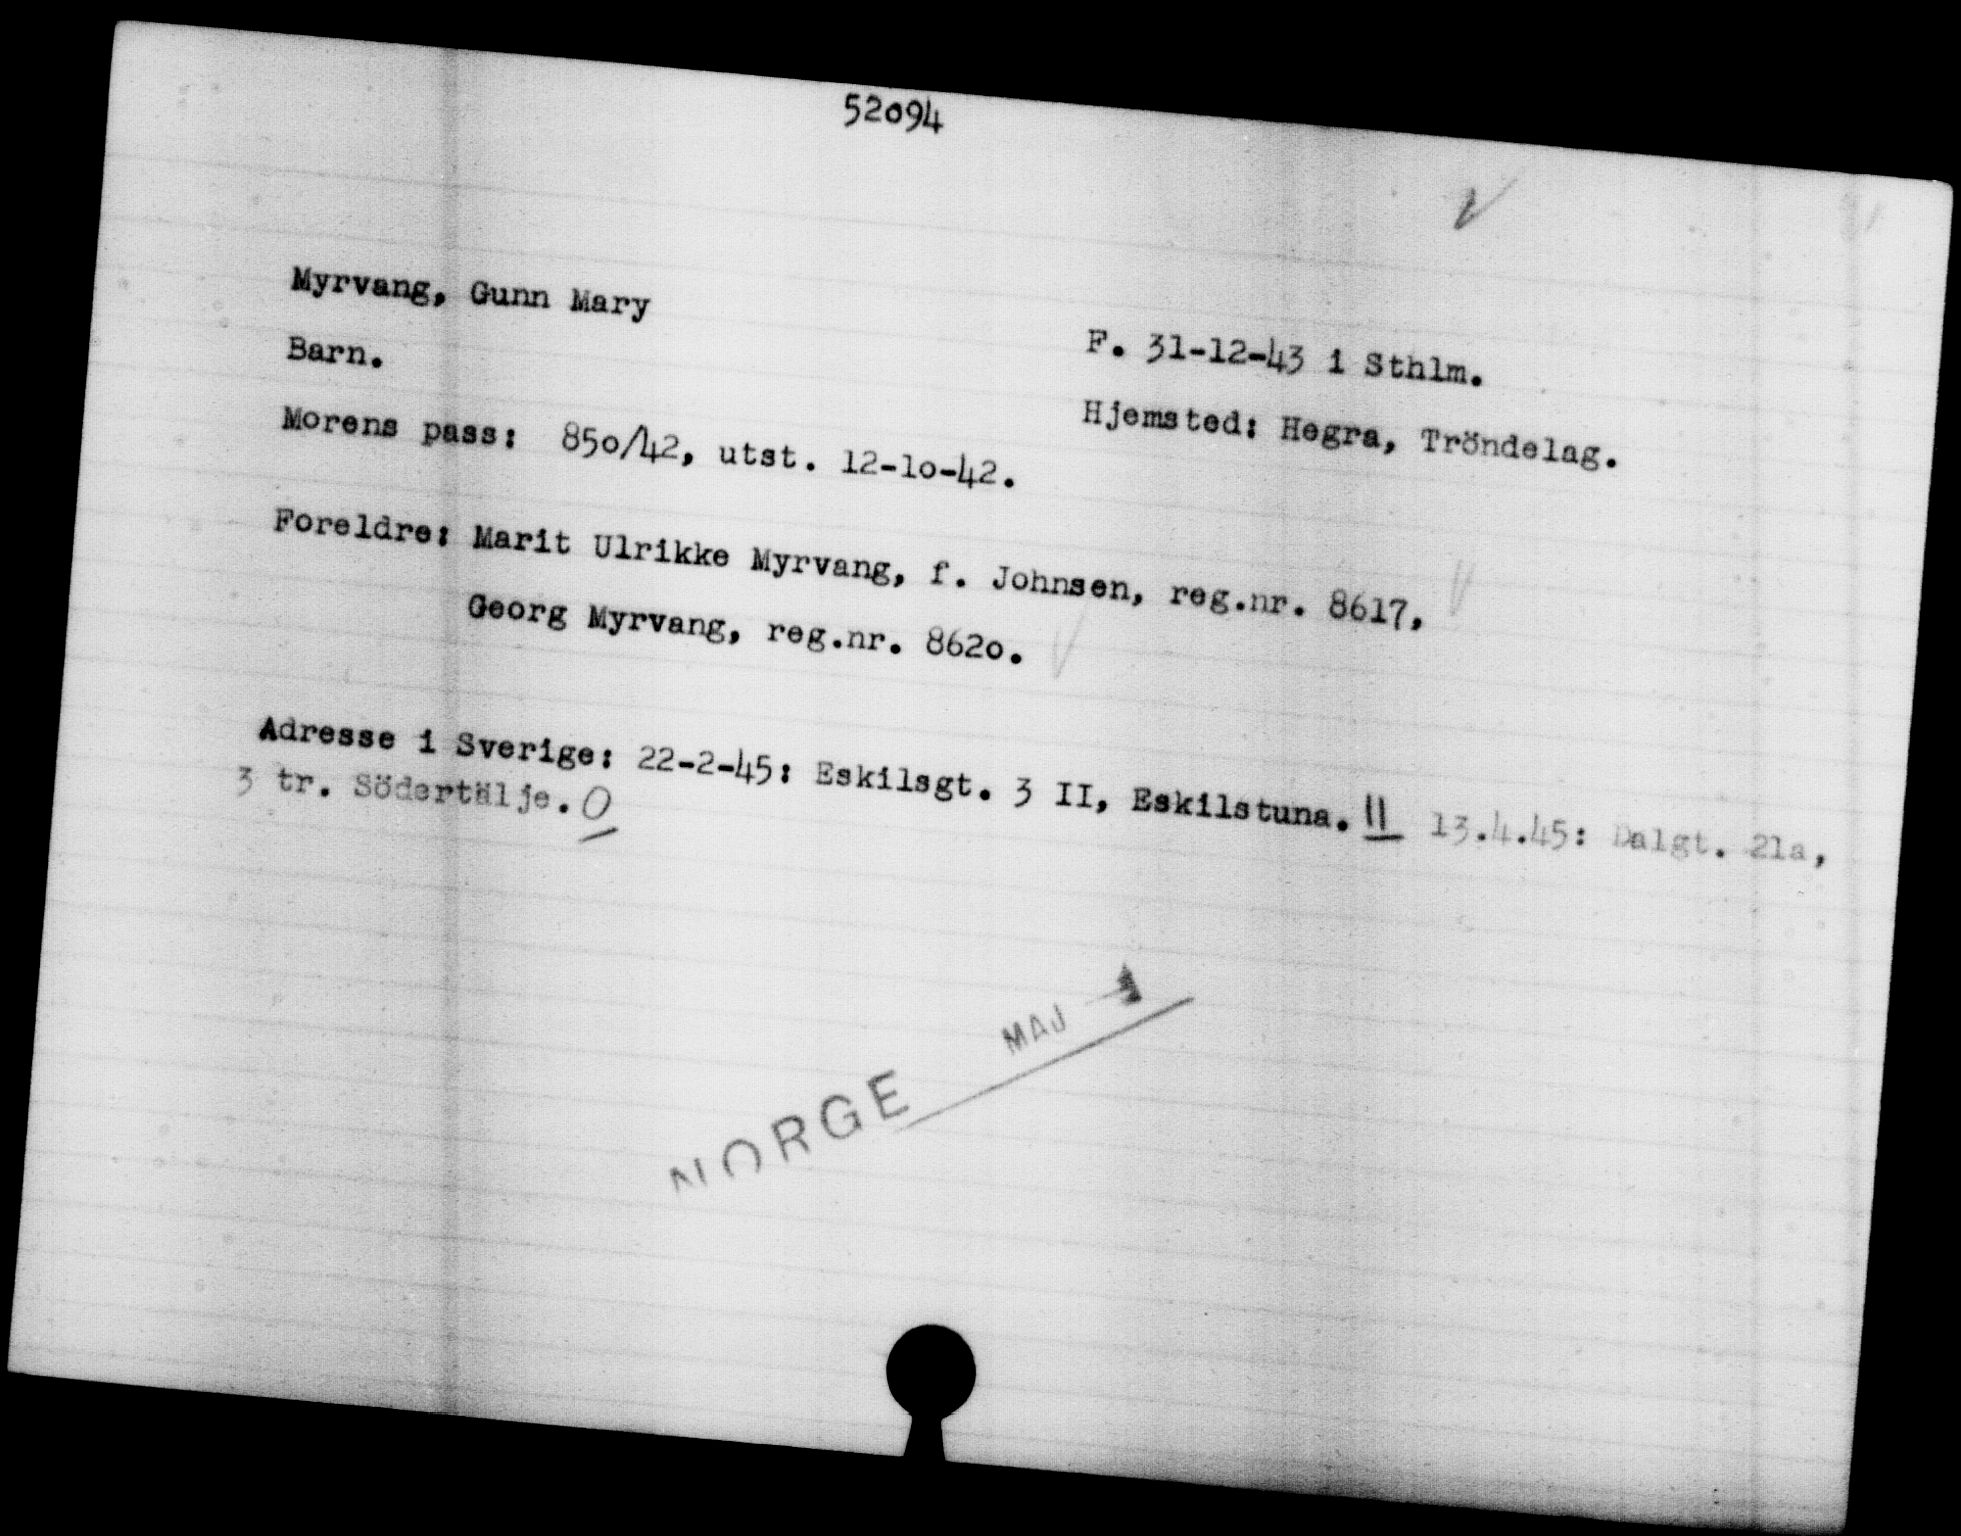 52094
Myrvang, Gunn Mary
F. 31-12-43 i Sthlm.
Barn.
Hjemsted: Hegra, Tröndelag.
Morens pass: 850/42, utst. 12-10-42.
Foreldre: Marit Ulrikke Myrvang, f. Johnsen, reg.nr. 8617,
Georg Myrvang, reg.nr. 8620.
Adresse i Sverige: 22-2-45: Eskilsgt. 3 II, Eskilstuna. II 13.4.45: Dalgt. 21a,
3 tr. Södertälje. O
NORGE MAJ